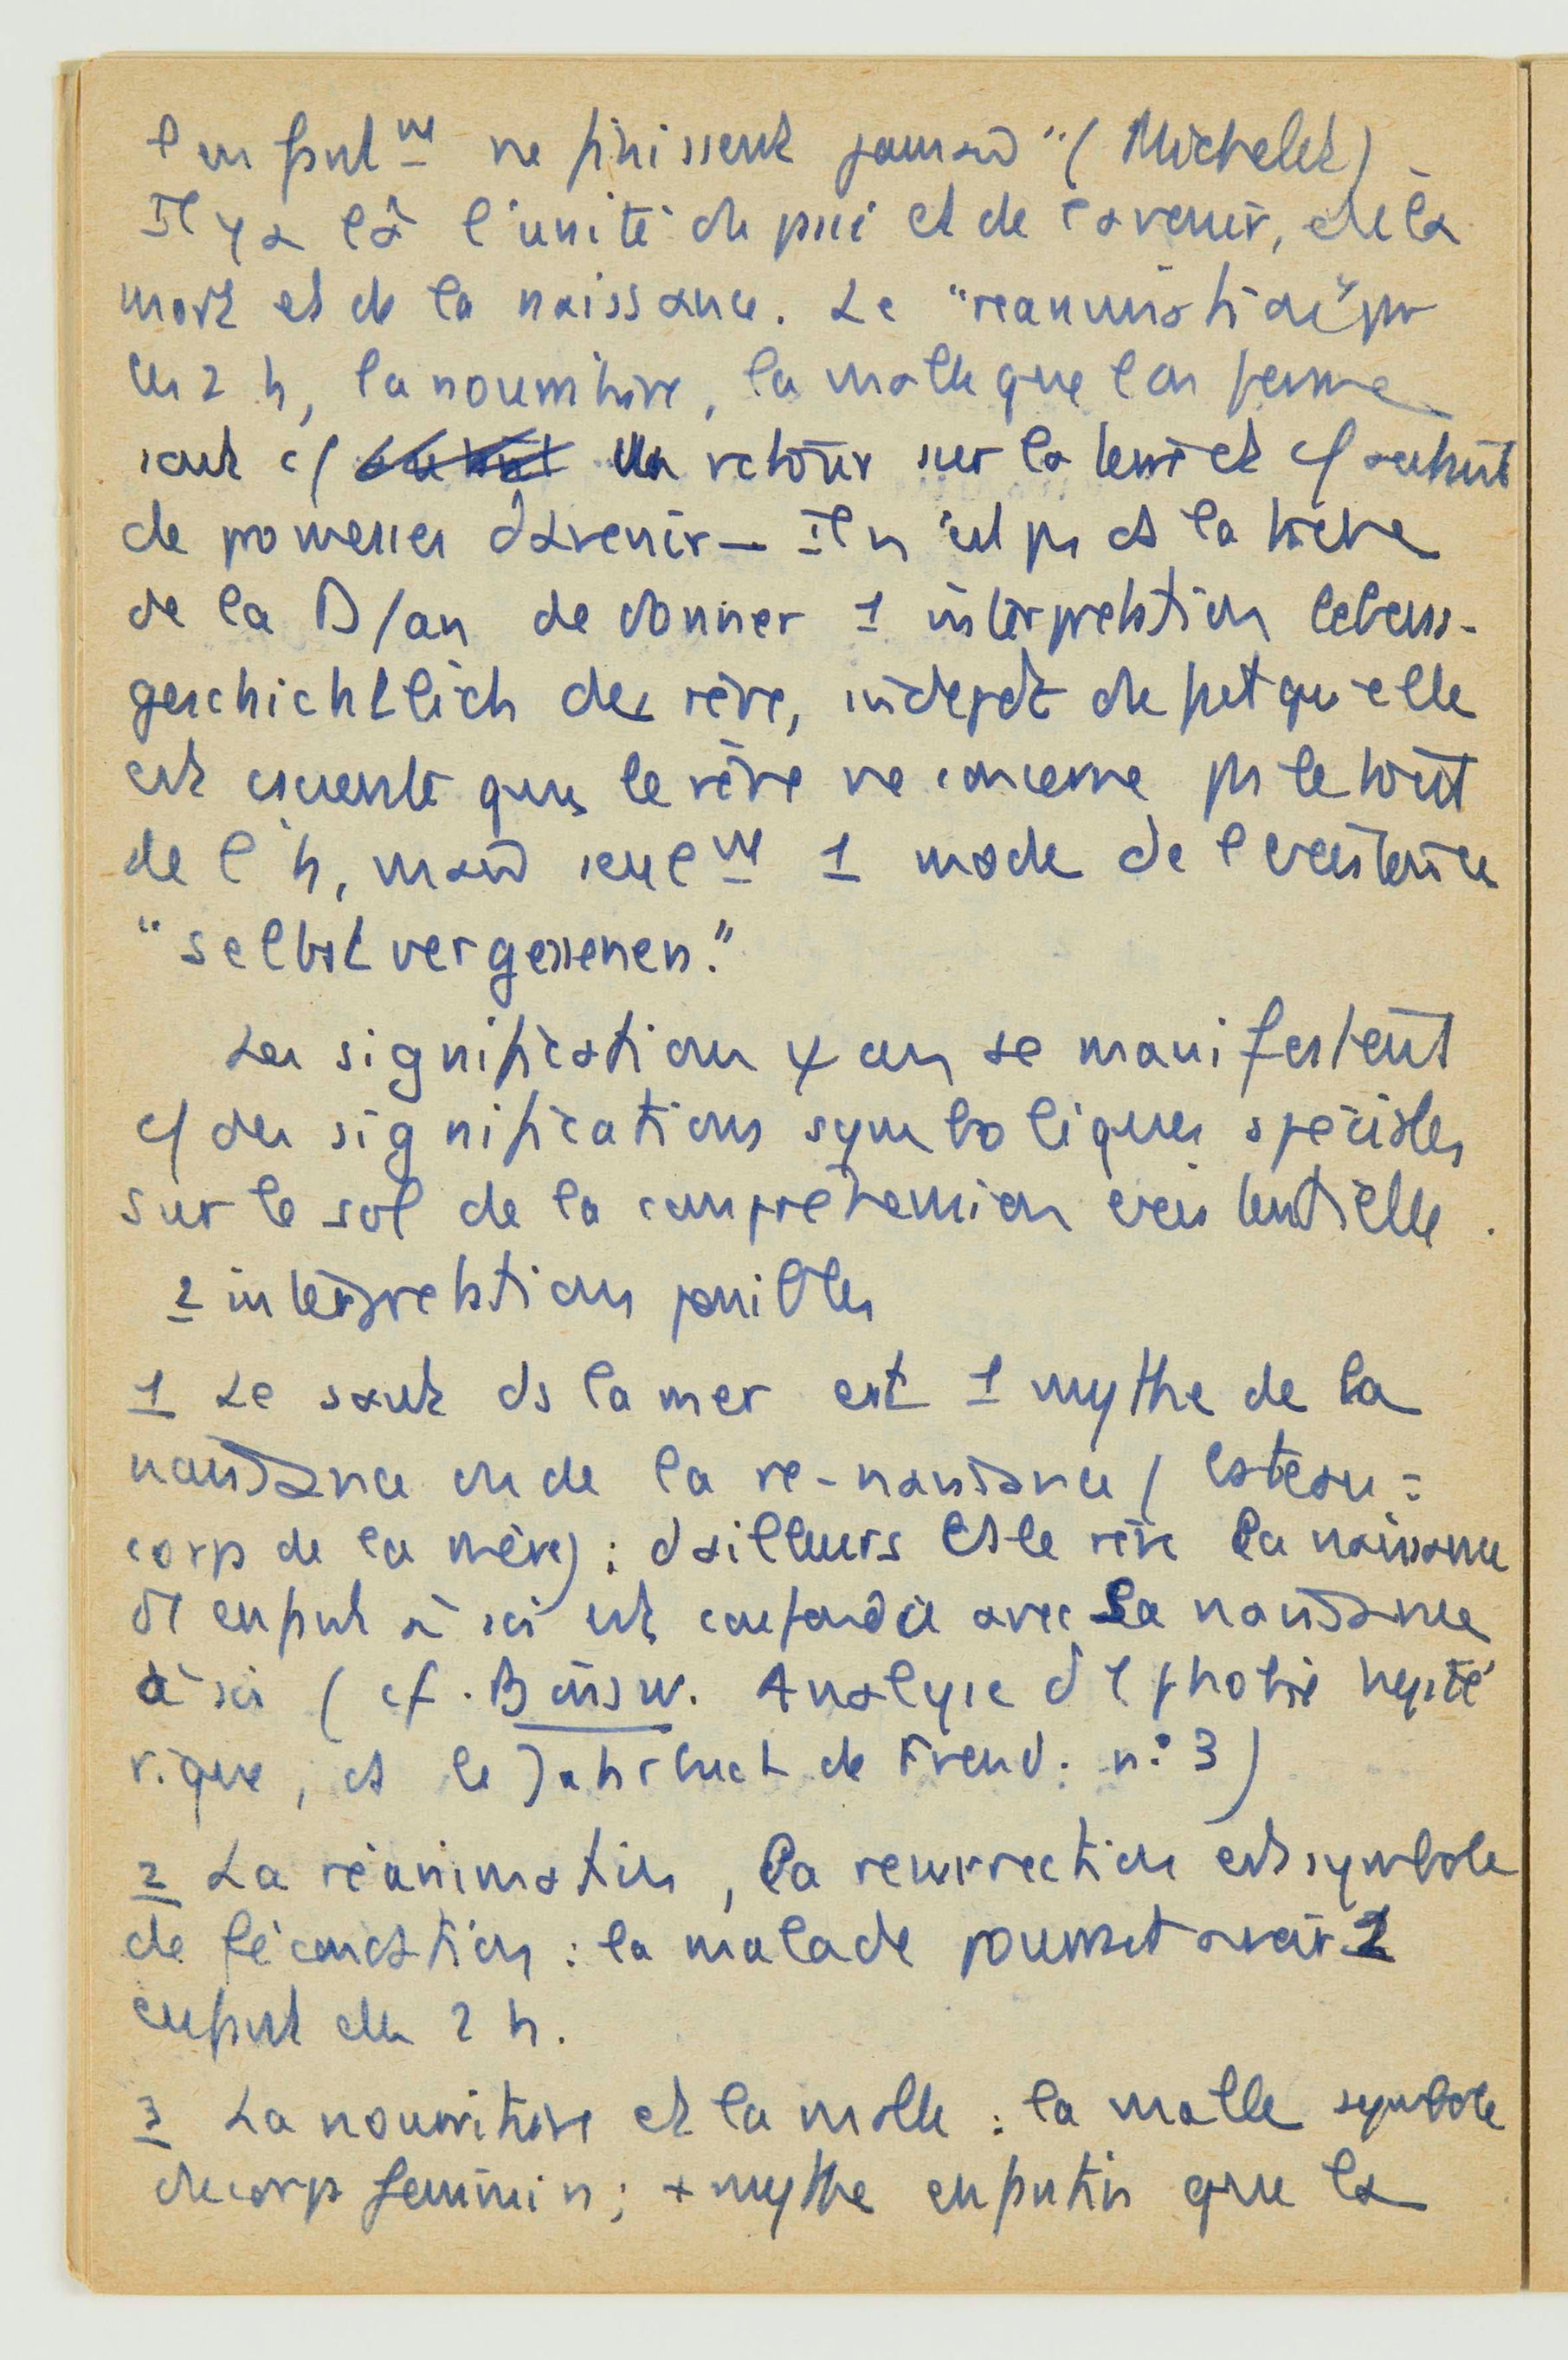 l'enfantmt ne finissent jamais" (Michelet)
Il y a là l'unité du passé et de l'avenir, de la
mort et de la naissance. Le "reanimation" par
les 2 h, la nourriture, la malle que l'on ferme
sont c/ un retour sur la terre et c/ autant
de promesses d'avenir — Il n'est pas ds la tâche
de la D/an de donner 1 interprétation lebens-
geschichtlich des rêve, indepdt du fait qu'elle
est essentle que le rêve ne concerne pas le tout
de l'h, mais seulmt 1 mode de l'existence
"selbstvergessenen."
Les signification ψ an se manifestent
c/ des significations symboliques spéciales
sur le sol de la compréhension existentielle.
2 interprétations possibles
1 Le saut ds la mer est 1 mythe de la
naissance ou de la re-naissance (l'ateau =
corps de la mère) ; d'ailleurs ds le rêve la naissance
d'1 enfant à soi est confondue avec la naissance
à soi (cf. Binsw. Analyse d'1 phobie hysté
rique, ds le Jahrbuch de Freud. n° 3)
2 La réanimation, la resurrection est symbole
de fécondation : la malade pourrait avoir 1
enfant des 2 h.
3 La nourriture et la malle : la malle symbole
du corps feminin ; + mythe enfantin que la